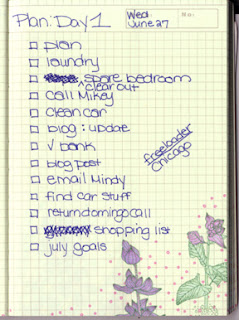 Plan: Day 1
Wed
June 27
No.
plan
laundry
spare bedroom
clear out
call Mikey
clean car
blog: update
√ bank
freeloader
Chicago
blog post
email Mindy
find car stuff
return domingo call
shopping list
july goals